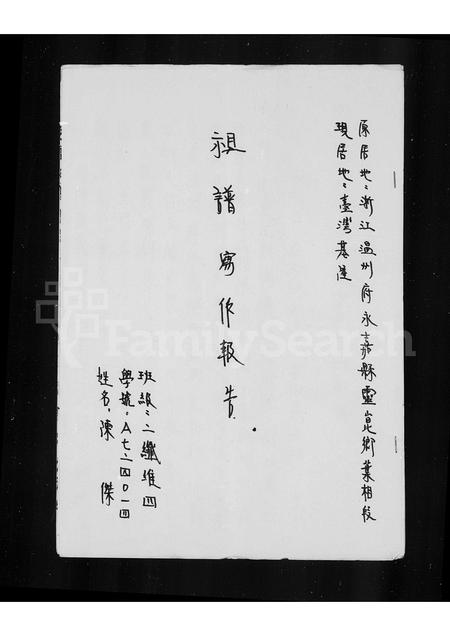 原居地:浙江溫州府永嘉縣靈崑鄉葉相後
現居地:臺灣基隆
祖譜寫作報告.
班級:二纖維四
學號:A七二四〇一四
姓名:陳 傑
FamilySearch